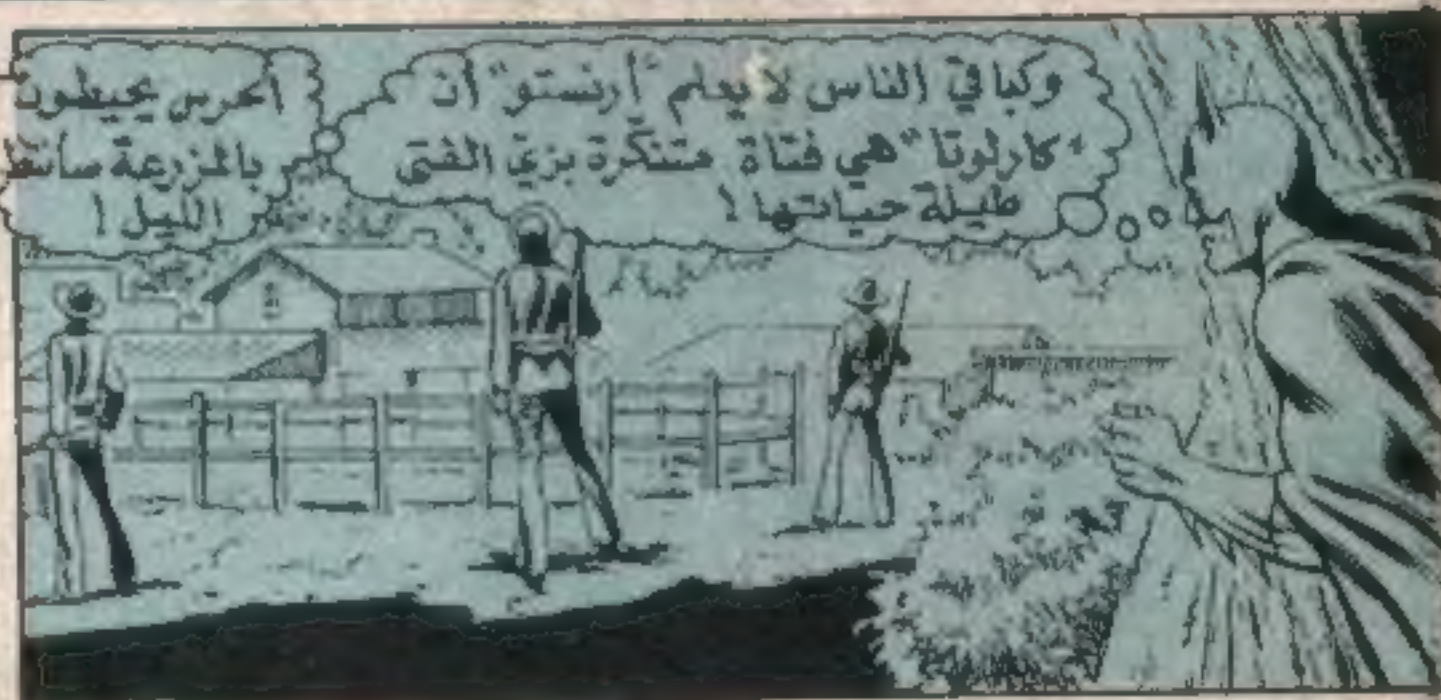 وكباقي الناس لا يعلم "أرنستو" أن
"كارلوتا" هي فتاة متنكرة بزي الفتى
طيلة حياتها !
الحرس يحيطون
بالمزرعة
الليل !